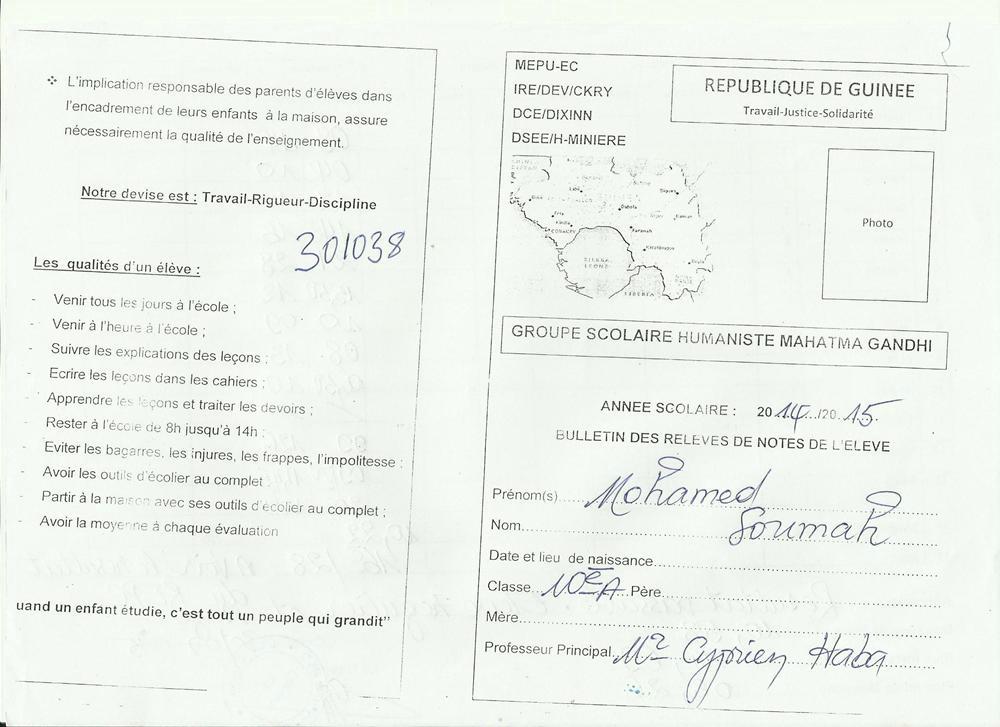 ❖ L'implication responsable des parents d'élèves dans
l'encadrement de leurs enfants à la maison, assure
nécessairement la qualité de l'enseignement.
Notre devise est : Travail-Rigueur-Discipline
301038
Les qualités d'un élève :
- Venir tous les jours à l'école ;
- Venir à l'heure à l'école ;
- Suivre les explications des leçons ;
- Ecrire les leçons dans les cahiers ;
- Apprendre les leçons et traiter les devoirs ;
- Rester à l'école de 8h jusqu'à 14h ;
- Eviter les bagarres, les injures, les frappes, l'impolitesse ;
- Avoir les outils d'écolier au complet
- Partir à la maison avec ses outils d'écolier au complet ;
- Avoir la moyenne à chaque évaluation
uand un enfant étudie, c'est tout un peuple qui grandit"
MEPU-EC
IRE/DEV/CKRY
DCE/DIXINN
DSEE/H-MINIERE
REPUBLIQUE DE GUINEE
Travail-Justice-Solidarité
CONAKRY
SIERRA
LEONE
LIBERIA
Photo
GROUPE SCOLAIRE HUMANISTE MAHATMA GANDHI
ANNEE SCOLAIRE : 2014/2015
BULLETIN DES RELEVES DE NOTES DE L'ELEVE
Prénom(s) Mohamed
Nom Soumah
Date et lieu de naissance
Classe 10e A Père
Mère
Professeur Principal Mr Cyprien Haba